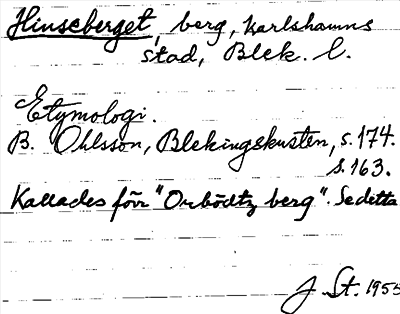 Hinseberget, berg, Karlshamns
stad, Blek. l.
Etymologi.
B. Ohlsson, Blekingskusten, s. 174.
s. 163.
Kallades förr "Orbödtz berg". Se detta
J. St. 1955